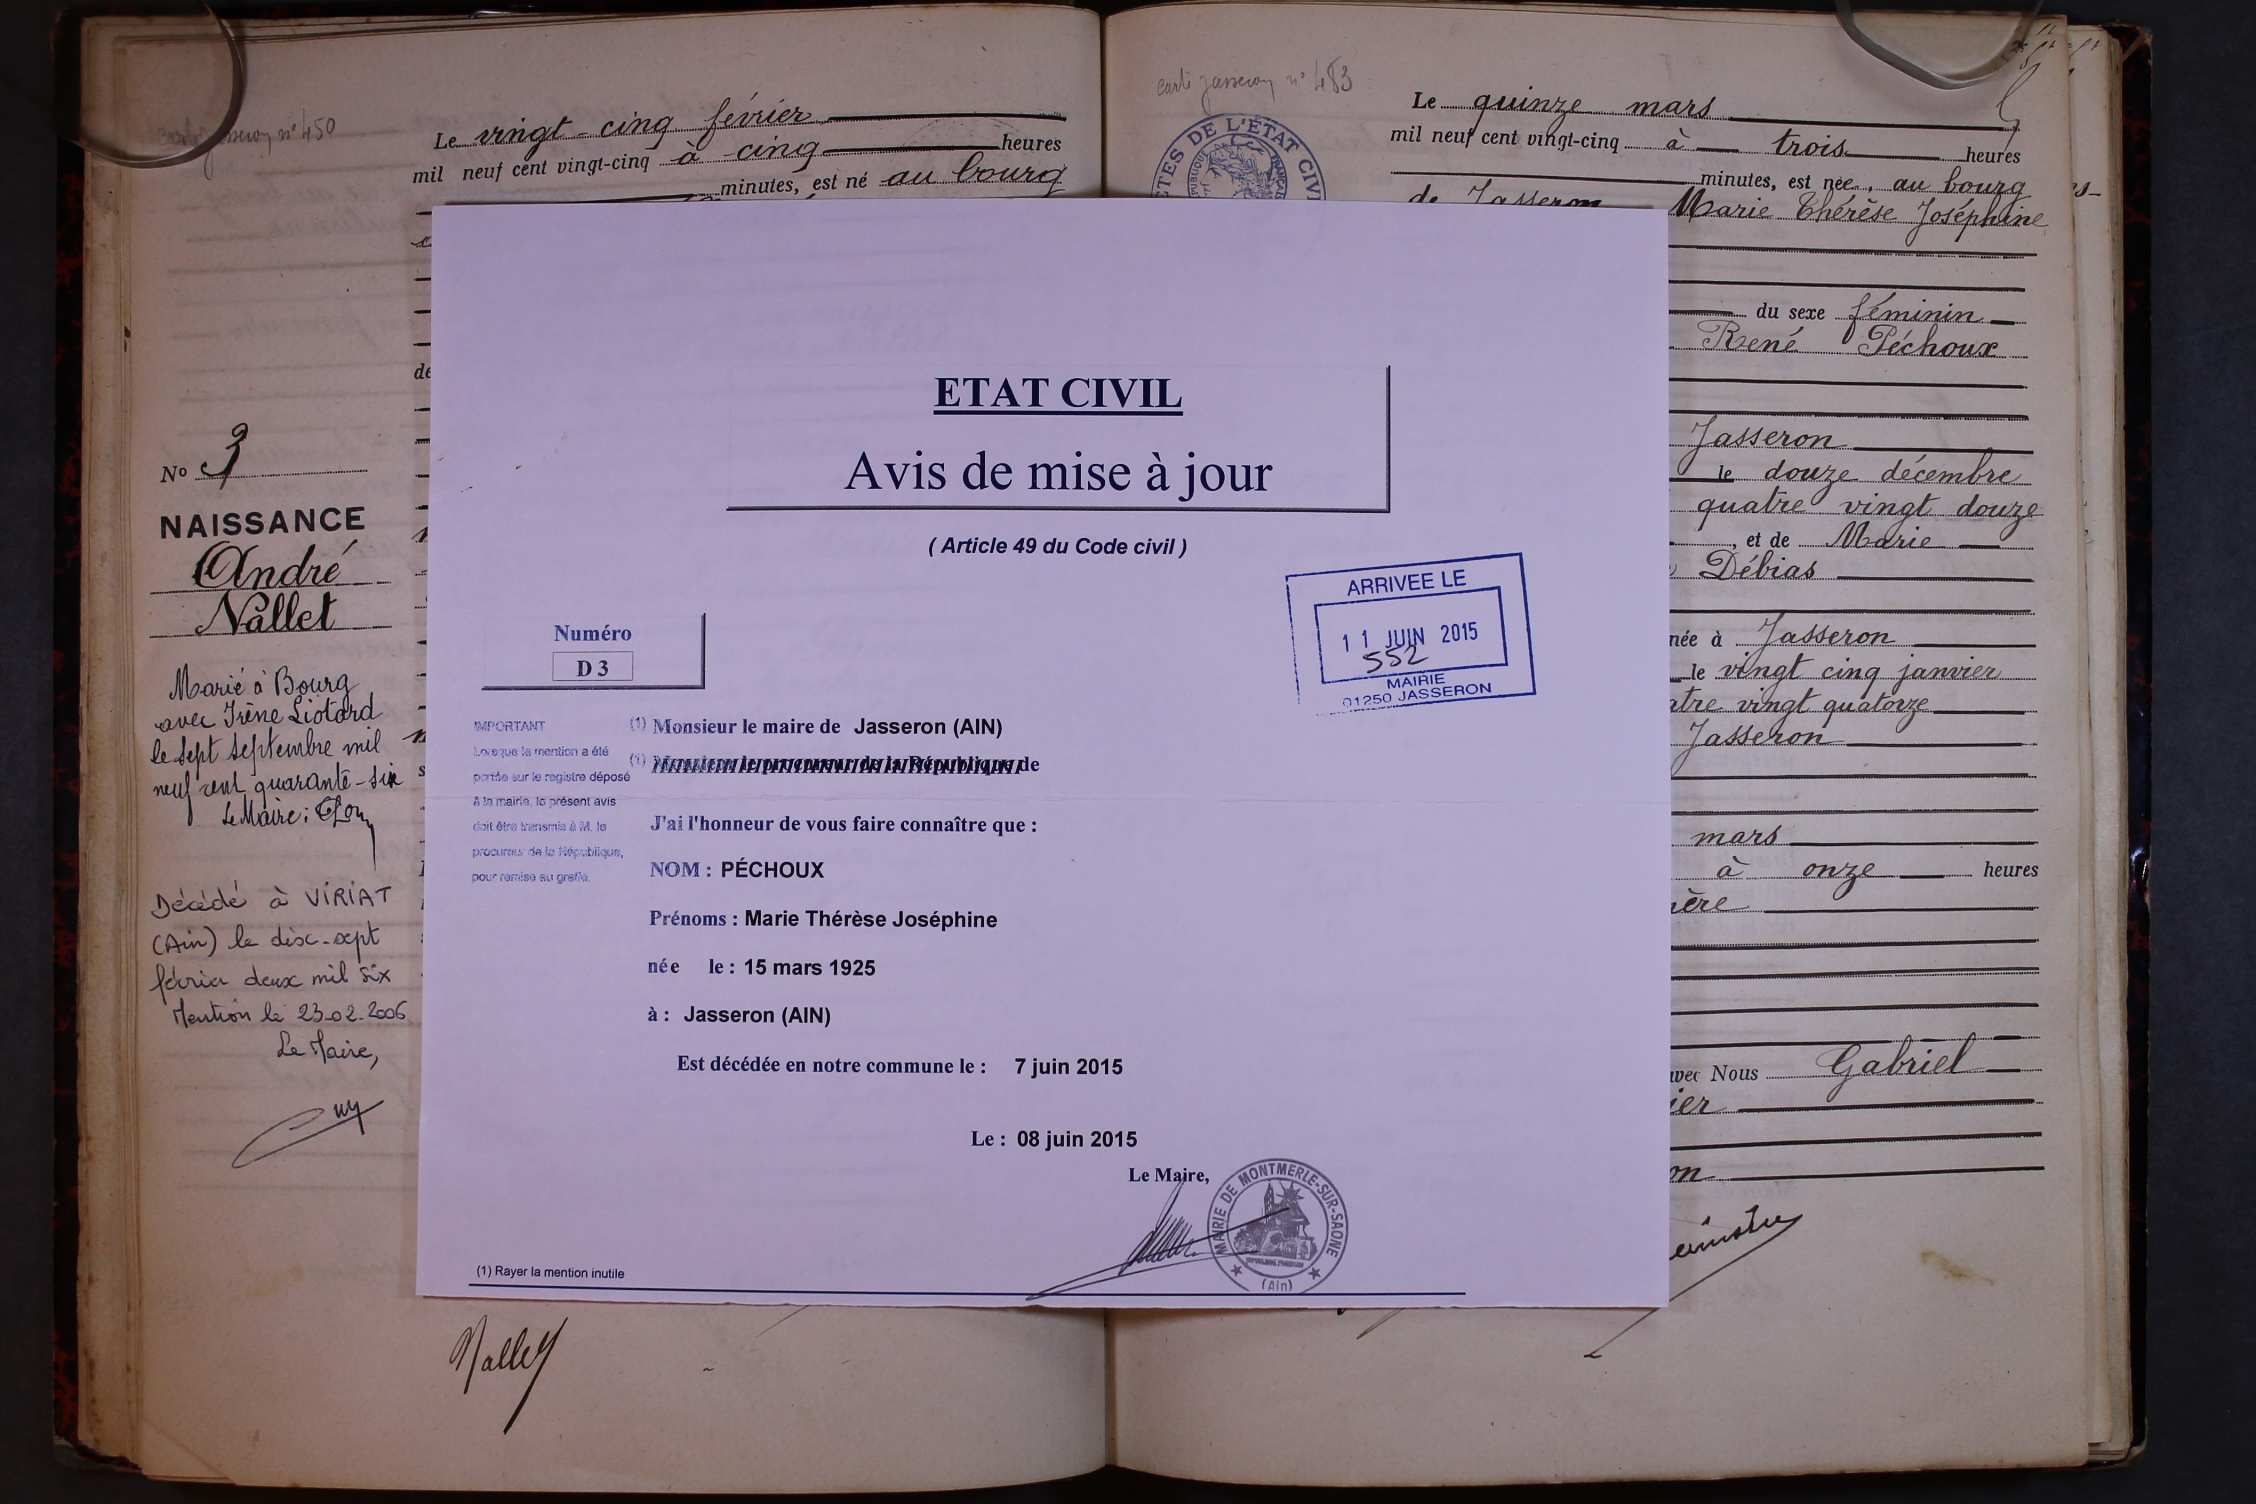 Le vingt-cinq février
mil neuf cent vingt-cinq à cinq heures
minutes, est né au bourg
No 3
NAISSANCE
André
Nallet
Marié à Bourg
avec Irène Liotard
le sept septembre mil
neuf cent quarante-six
Le Maire:
Décédé à VIRIAT
(Ain) le dix-sept
février deux mil six
Mention le 23-02-2006
Le Maire,
Nallet
carte Jasseron n° 483
ACTES DE L'ÉTAT CIVIL
Le quinze mars
mil neuf cent vingt-cinq à trois heures
minutes, est née, au bourg
de Jasseron Marie Thérèse Joséphine
du sexe féminin
René Péchoux
Jasseron
le douze décembre
quatre vingt douze
, et de Marie
Débias
née à Jasseron
le vingt cinq janvier
vingt quatorze
Jasseron
mars
à onze heures
Nous Gabriel
ETAT CIVIL
Avis de mise à jour
( Article 49 du Code civil )
ARRIVEE LE
11 JUIN 2015
552
MAIRIE
01250 JASSERON
Numéro
D 3
IMPORTANT
Lorsque la mention a été
portée sur le registre déposé
à la mairie, le présent avis
doit être transmis à M. le
procureur de la République,
pour remise au greffe.
(1) Monsieur le maire de Jasseron (AIN)
(1) Monsieur le procureur de la République de
J'ai l'honneur de vous faire connaître que :
NOM : PÉCHOUX
Prénoms : Marie Thérèse Joséphine
née le : 15 mars 1925
à : Jasseron (AIN)
Est décédée en notre commune le : 7 juin 2015
Le : 08 juin 2015
Le Maire,
MAIRIE DE MONTMERLE-SUR-SAONE
(Ain)
(1) Rayer la mention inutile